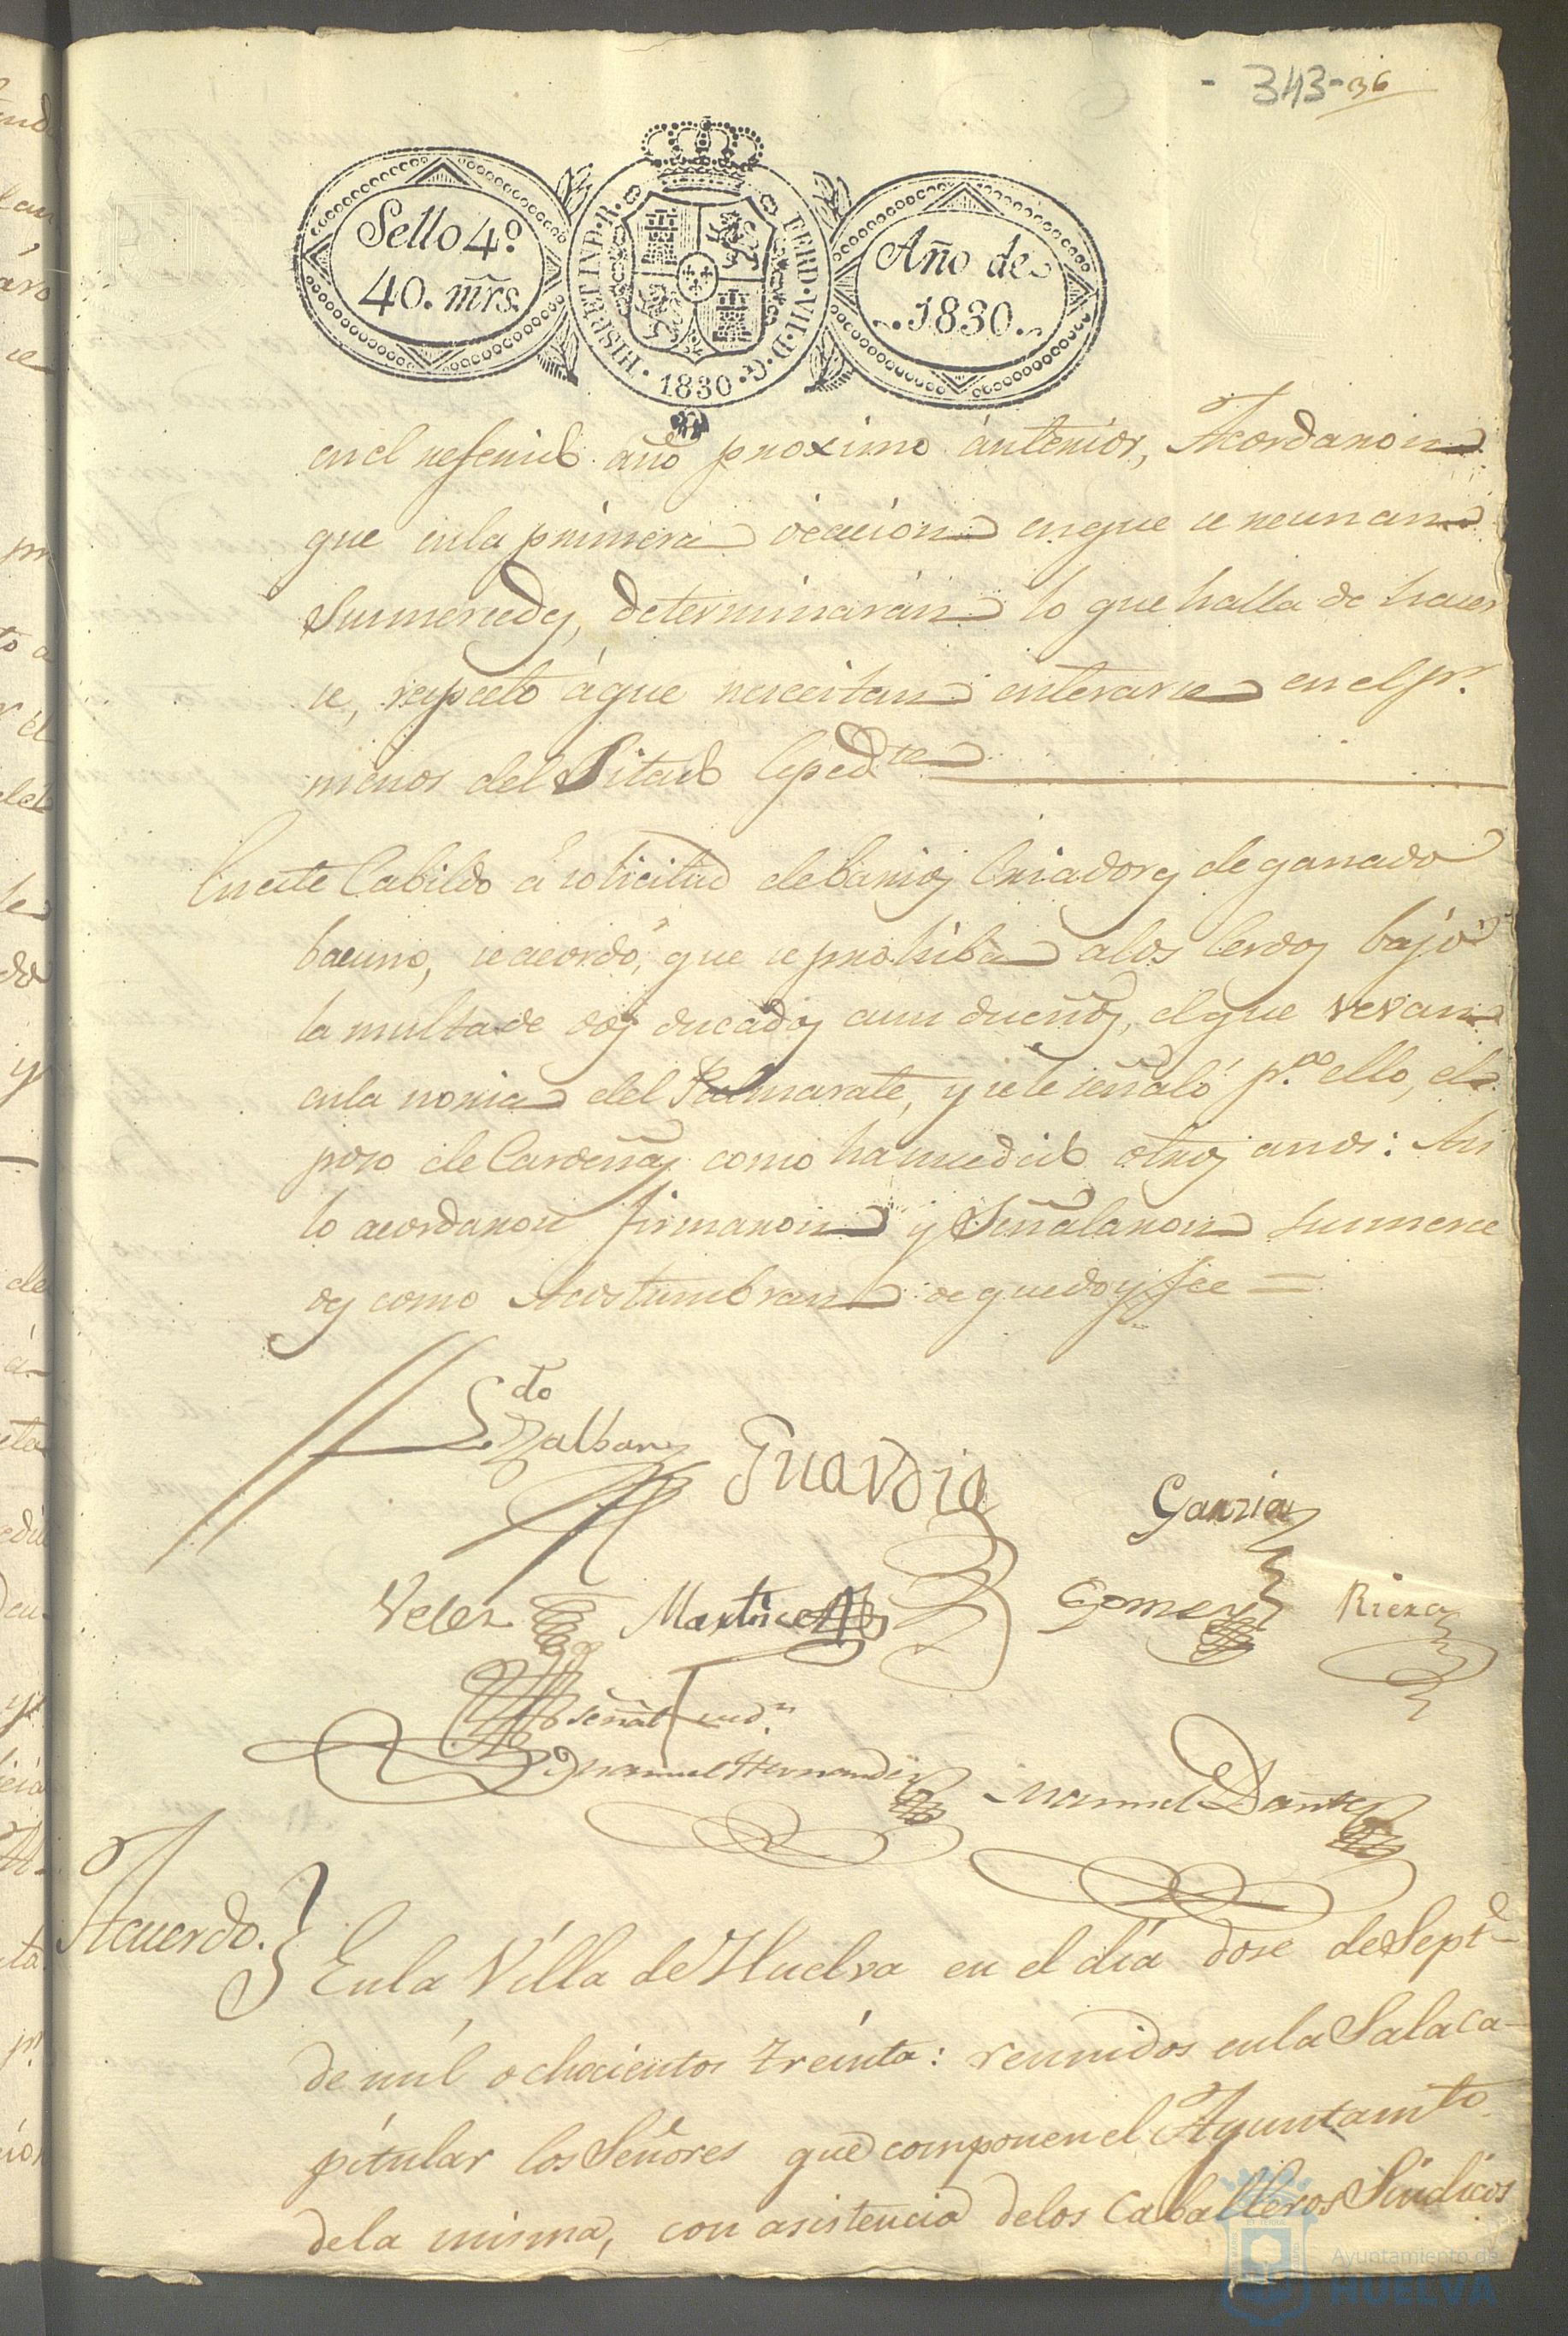 - 343-36
Sello 4º
40. mrs.
HISP. ET IND. R.
FERD. VII. D. G.
1830
Año de
1830.
en el referido año proximo ánterior, Acordaron
que enla primera ocacion en que se reunan
Sus mercedes, determinarán lo que halla de hacer
se, respecto á que necesitan enterarse en el pr.
menor del Citado Exped.te
En este Cabildo á solicitud de barios Criadores de ganado
bacuno, se acordó, que se prohiba alos Cerdos bajo
la multa de dos ducados a su dueño, el que vevan
enla noria del Palmarate, y se le señaló p.ª ello, el
poso de Cardeñas como ha sucedido otros anos: Asi
lo acordaron firmaron y Señalaron sus merce
des como Acostumbran de que doy fee =
L.do Zalbany
Guardia
Garzia
Velez
Martinez
Gomez
Riera
señal
Manuel Hernandez
Manuel Dante
Acuerdo. } En la Villa de Huelva en el día dose de Sept.e
de mil ochocientos treinta: reunidos en la Sala ca-
pitular los Señores que componen el Ayuntamto
de la misma, con asistencia delos Caballeros Sindicos
Ayuntamiento de
HUELVA